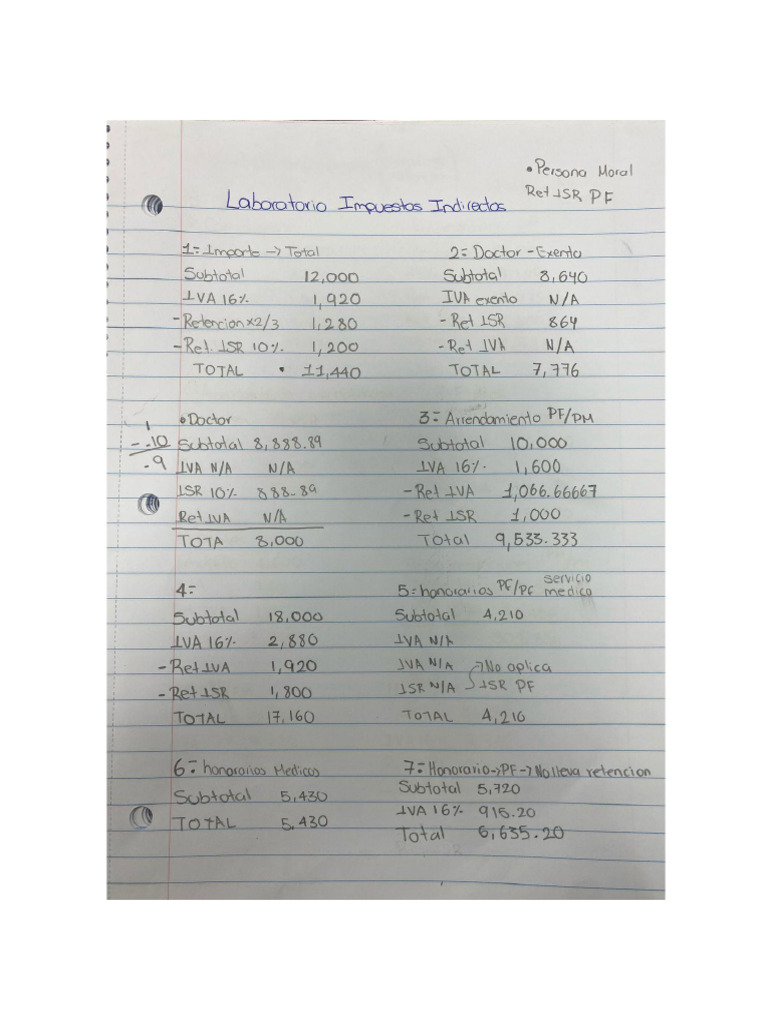 • Persona Moral
Ret ISR PF
Laboratorio Impuestos Indirectos
1= Importe → Total
Subtotal 12,000
IVA 16% 1,920
- Retencion x2/3 1,280
- Ret. ISR 10% 1,200
TOTAL • 11,440
2= Doctor - Exento
Subtotal 8,640
IVA exento N/A
- Ret ISR 864
- Ret IVA N/A
TOTAL 7,776
1
- .10
.9
• Doctor
Subtotal 8,888.89
IVA N/A N/A
ISR 10% 888.89
Ret IVA N/A
TOTA 8,000
3= Arrendamiento PF/PM
Subtotal 10,000
IVA 16% 1,600
- Ret IVA 1,066.66667
- Ret ISR 1,000
Total 9,533.333
4=
Subtotal 18,000
IVA 16% 2,880
- Ret IVA 1,920
- Ret ISR 1,800
TOTAL 17,160
5= honorarios PF/PF servicio medico
Subtotal 4,210
IVA N/A
IVA N/A → No aplica
ISR N/A ISR PF
TOTAL 4,210
6= honorarios Medicos
Subtotal 5,430
TOTAL 5,430
7= Honorario → PF → No lleva retencion
Subtotal 5,720
IVA 16% 915.20
Total 6,635.20